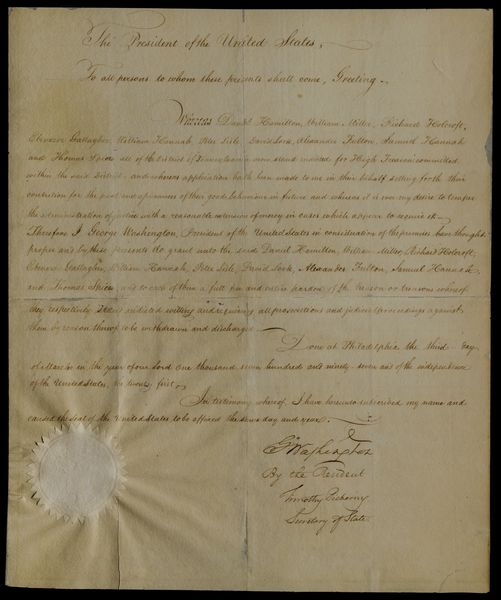 The President of the United States,
To all persons to whom these presents shall come, Greeting
Whereas Daniel Hamilton, William Miller, Richard Holcroft,
Ebenezer Gallagher, William Hannah, Peter Lisle, David Lock, Alexander Fulton, Samuel Hannah
and Thomas Spiers all of the District of Pennsylvania now stand indicted for High Treason committed
within the said District, and whereas application hath been made to me in their behalf setting forth their
contrition for the past and assurances of their good behaviour in future and whereas it is ever my desire to temper
the administration of justice with a reasonable extension of mercy in cases which appear to require it
Therefore I George Washington, President of the United States in consideration of the premises have thought
proper and by these presents do grant unto the said Daniel Hamilton, William Miller, Richard Holcroft,
Ebenezer Gallagher, William Hannah, Peter Lisle, David Lock, Alexander Fulton, Samuel Hannah
and Thomas Spiers, and to each of them a full free and entire pardon of the treason or treasons whereof
they respectively stand indicted willing and requiring all prosecutions and judicial proceedings against
them by reason thereof to be withdrawn and discharged
Done at Philadelphia the third day
of March in the year of our Lord one thousand seven hundred and ninety seven and of the independence
of the United States, the twenty first.
In testimony whereof I have hereunto subscribed my name and
caused the seal of the United States to be affixed the same day and year.
G Washington
By the President
Timothy Pickering
Secretary of State